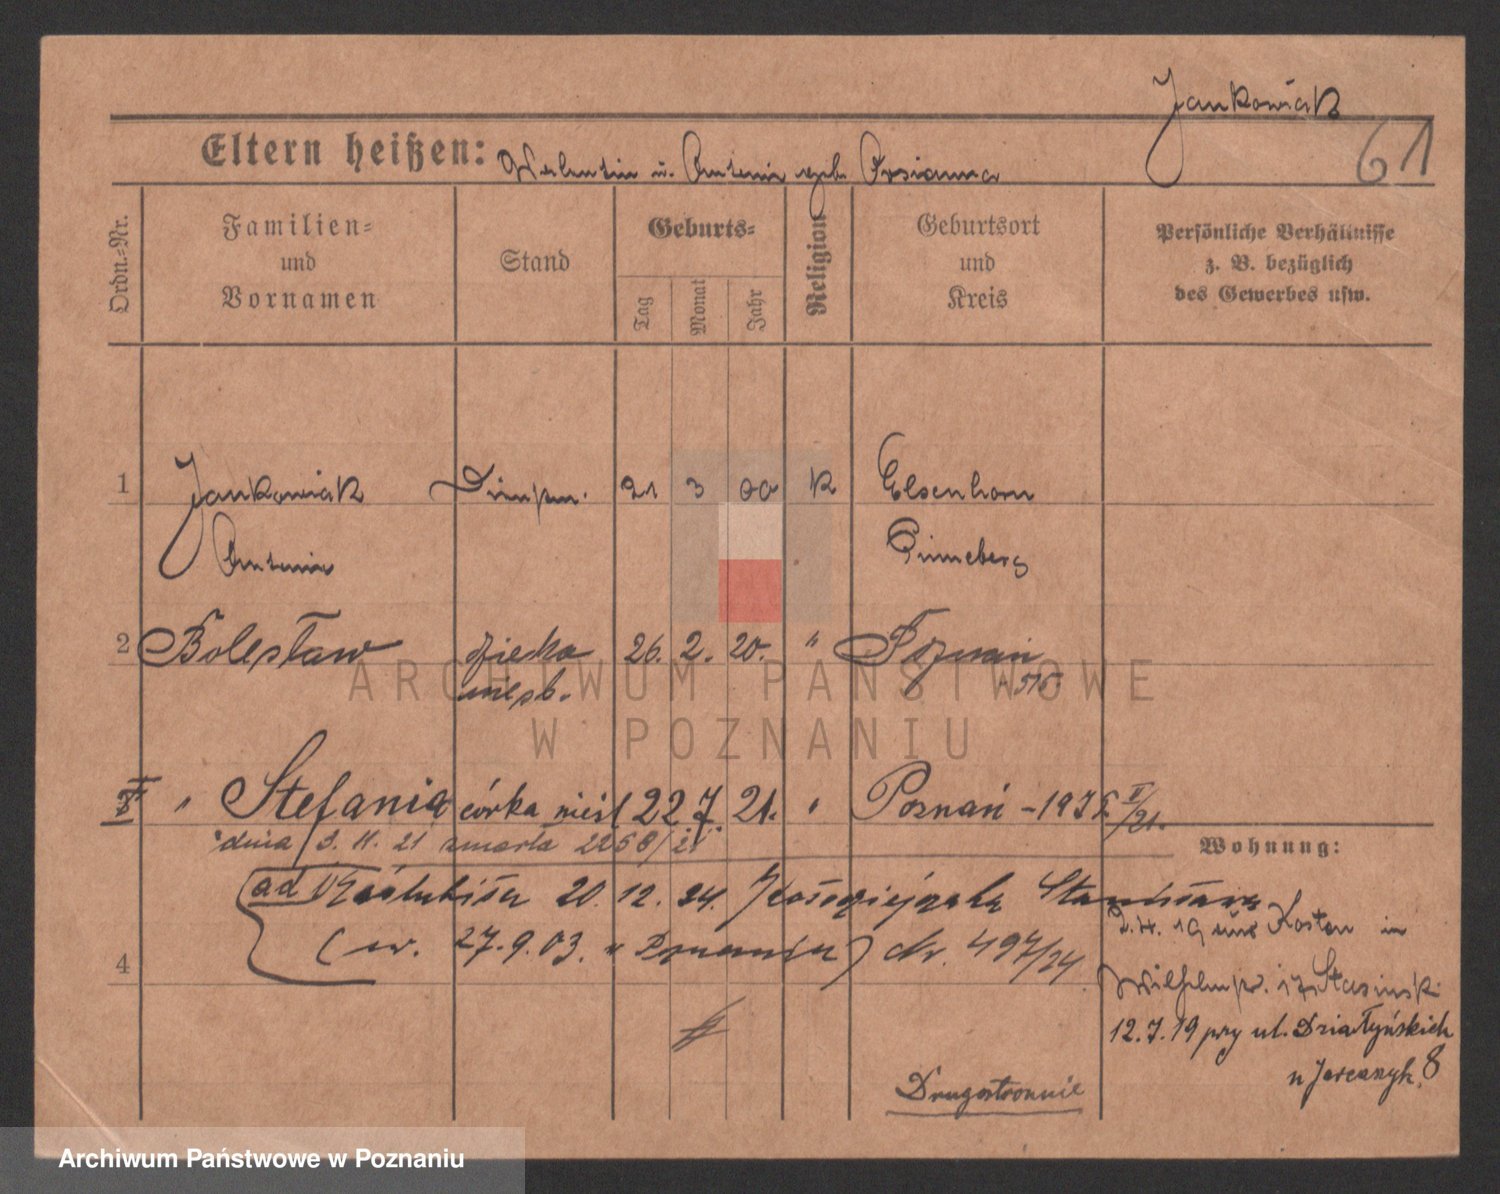 Jankowiak
61
Eltern heißen: Valentin u. Antonie geb.
Ordn.-Nr.
Familien-
und
Vornamen
Stand
Geburts-
Tag
Monat
Jahr
Religion
Geburtsort
und
Kreis
Persönliche Verhältnisse
z. B. bezüglich
des Gewerbes usw.
1 Jankowiak 21 3 00 K Elsenhorn
Antonie Pinneberg
2 Bolesław dziecko 26. 2. 20. " Poznań
nieśb. 515
" Stefania córka nieśl 22 7 21. " Poznań - 1975 II/21.
dnia 3. 11. 21 zmarła 2268/21
Wohnung:
ad 1/ 20. 12. 24. Stanisław
(ur. 27.9.03. w Poznaniu) Nr. 497/24
4
19 Kosten in
Wilhelmstr. 17 Stasinski
12.7.19 przy ul. Działyńskich
u 8
Drugostronnie
ARCHIWUM PAŃSTWOWE
W POZNANIU
Archiwum Państwowe w Poznaniu